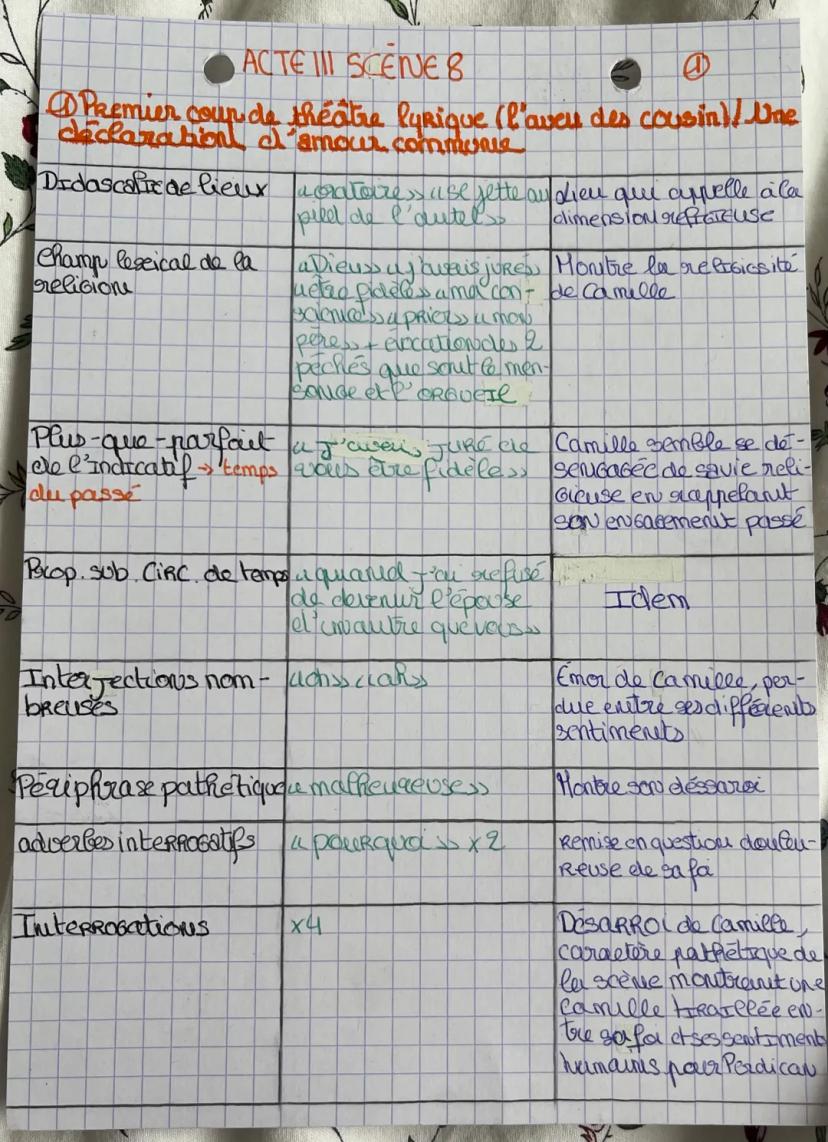 ACTE III SCÈNE 8
①
① Premier coup de théâtre lyrique (l'aveu des cousin) / Une
déclaration d'amour commune
Didascalie de lieux
« oratoire » « se jette au
pied de l'autel »
Lieu qui appelle à la
dimension religieuse
Champ lexical de la
religion
« Dieu » « j'avais juré »
« être fidèle » « ma con-
science » « prier » « mon
père » + évocation des 2
péchés que sont le men-
songe et l'ORGUEIL
Montre la religiosité
de Camille
Plus-que-parfait
de l'indicatif → temps
du passé
« J'avais JURÉ de
vous être fidèle »
Camille semble se dé-
sengagée de sa vie reli-
gieuse en rappelant
son engagement passé
Prop. sub. CIRC. de temps
« quand j'ai refusé
de devenir l'épouse
d'un autre que vous »
Idem
Interjections nom-
BREUSES
« oh » « ah »
Émoi de Camille, per-
due entre ses différents
sentiments
Périphrase pathétique
« malheureuse »
Montre son déssaroi
adverbes inteRROGatifs
« pouRquoi » x2
Remise en question doulou-
Reuse de sa foi
InteRROGations
x4
DésARROI de Camille,
caractère pathétique de
la scène montrant une
Camille tiraillée en-
tre sa foi et ses sentiment
humains pour Perdican